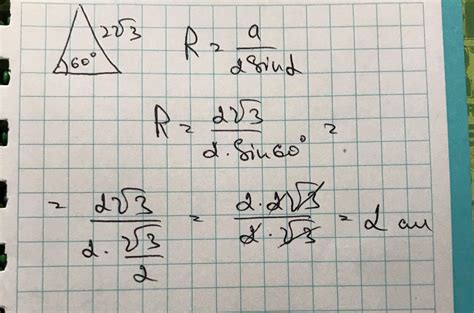 2√3
60°
R = a / 2 sin α
R = 2√3 / 2 · sin 60° =
= 2√3 / 2 · √3 / 2 = 2 · 2√3 / 2 · √3 = 2 см